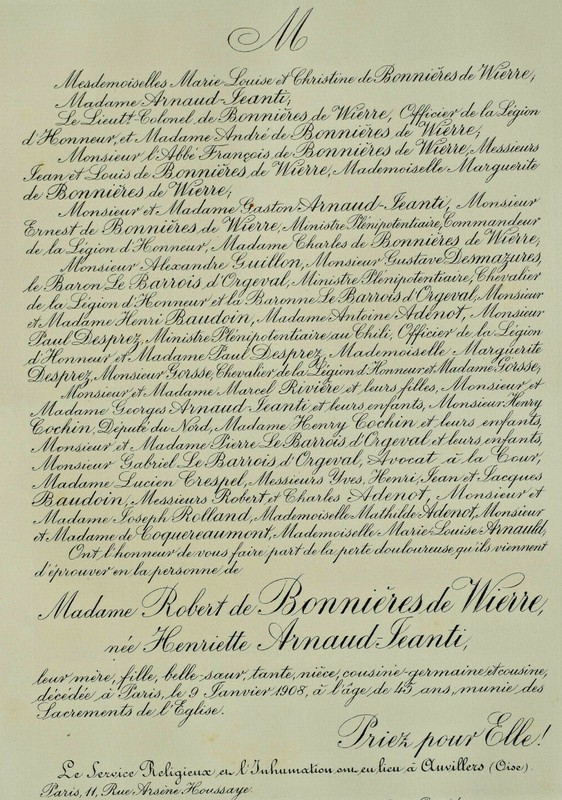 M
Mesdemoiselles Marie-Louise et Christine de Bonnières de Wierre,
Madame Arnaud-Jeanti,
Le Lieut.-Colonel de Bonnières de Wierre, Officier de la Légion
d'Honneur, et Madame André de Bonnières de Wierre,
Monsieur l'Abbé François de Bonnières de Wierre, Messieurs
Jean et Louis de Bonnières de Wierre, Mademoiselle Marguerite
de Bonnières de Wierre,
Monsieur et Madame Gaston Arnaud-Jeanti, Monsieur
Ernest de Bonnières de Wierre, Ministre Plénipotentiaire, Commandeur
de la Légion d'Honneur, Madame Charles de Bonnières de Wierre,
Monsieur Alexandre Guillon, Monsieur Gustave Desmazures,
le Baron Le Barrois d'Orgeval, Ministre Plénipotentiaire, Chevalier
de la Légion d'Honneur et la Baronne Le Barrois d'Orgeval, Monsieur
et Madame Henri Baudoin, Madame Antoine Adenot, Monsieur
Paul Desprez, Ministre Plénipotentiaire au Chili, Officier de la Légion
d'Honneur et Madame Paul Desprez, Mademoiselle Marguerite
Desprez, Monsieur Gorsse, Chevalier de la Légion d'Honneur et Madame Gorsse,
Monsieur et Madame Marcel Rivière et leurs filles, Monsieur et
Madame Georges Arnaud-Jeanti et leurs enfants, Monsieur Henry
Cochin, Député du Nord, Madame Henry Cochin et leurs enfants,
Monsieur et Madame Pierre Le Barrois d'Orgeval et leurs enfants,
Monsieur Gabriel Le Barrois d'Orgeval, Avocat à la Cour,
Madame Lucien Crespel, Messieurs Yves, Henri, Jean et Jacques
Baudoin, Messieurs Robert et Charles Adenot, Monsieur et
Madame Joseph Rolland, Mademoiselle Mathilde Adenot, Monsieur
et Madame de Coquereaumont, Mademoiselle Marie-Louise Arnauld,
Ont l'honneur de vous faire part de la perte douloureuse qu'ils viennent
d'éprouver en la personne de
Madame Robert de Bonnières de Wierre,
née Henriette Arnaud-Jeanti,
leur mère, fille, belle-sœur, tante, nièce, cousine-germaine et cousine,
décédée à Paris, le 9 Janvier 1908, à l'âge de 45 ans, munie des
Sacrements de l'Eglise.
Priez pour Elle!
Le Service Religieux et l'Inhumation ont eu lieu à Auvillers (Oise).
Paris, 11, Rue Arsène Houssaye.